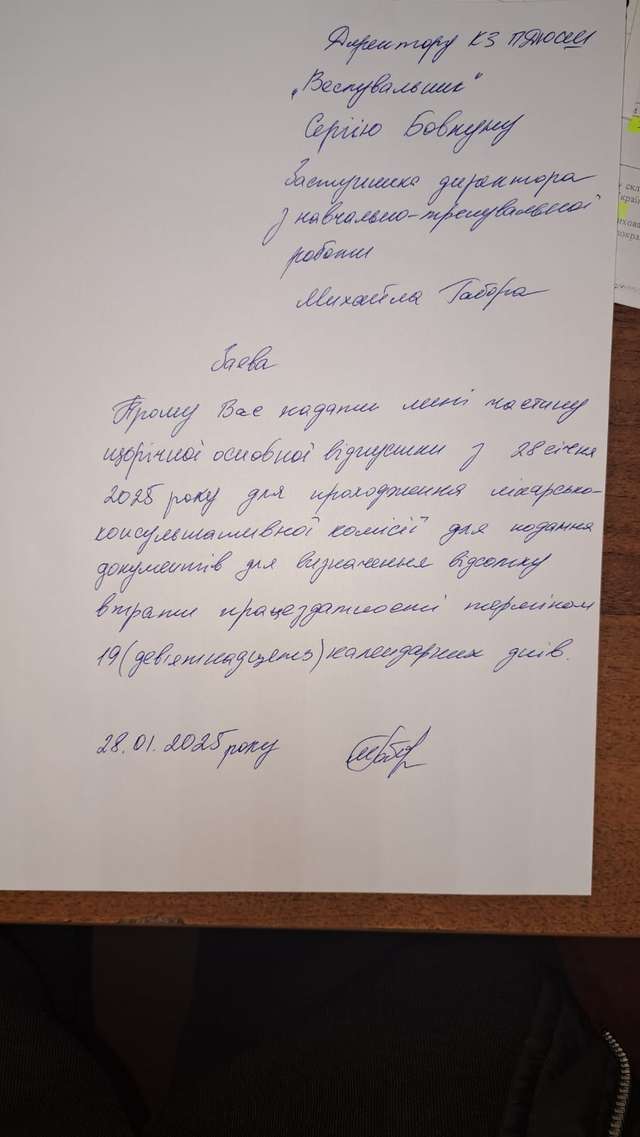 Директору КЗ ПДЮСШ
"Веслувальник"
Сергію Бовкуну
Заступника директора
з навчально-тренувальної
роботи
Михайла Габора
Заява
Прошу Вас надати мені частину
щорічної основної відпустки з 28 січня
2025 року для проходження лікарсько-
консультативної комісії для подання
документів для визначення відсотку
втрати працездатності терміном
19 (дев'ятнадцять) календарних днів.
28.01.2025 року